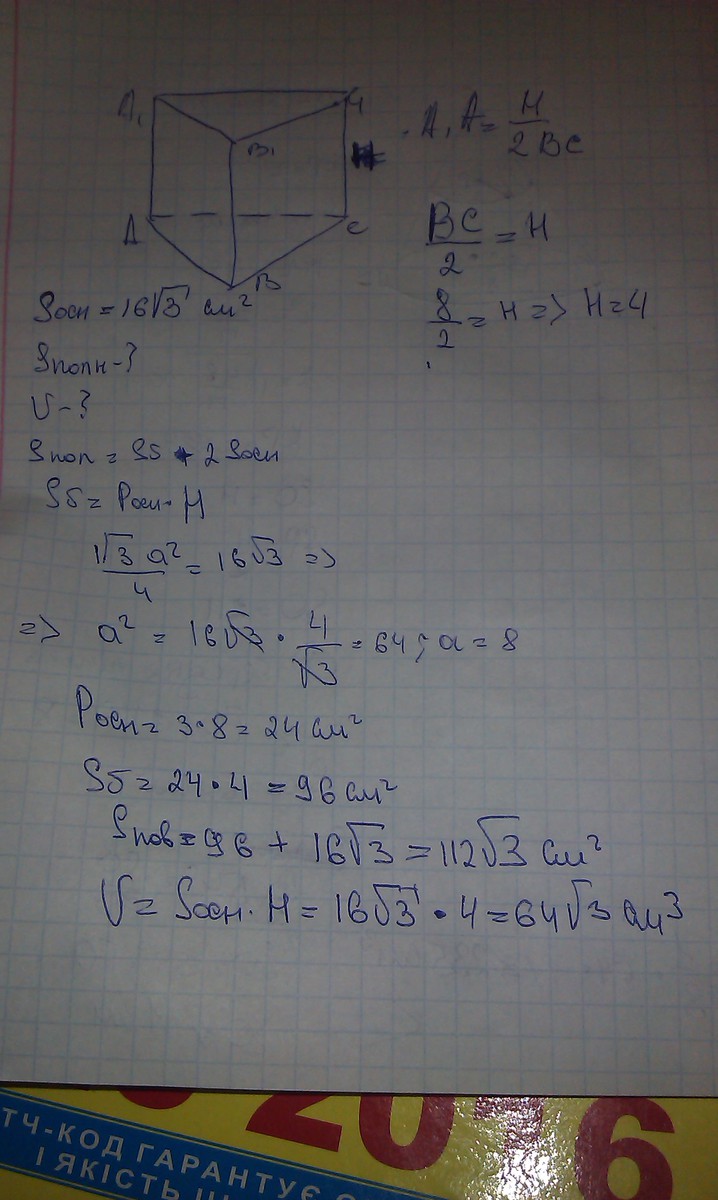 A₁
B₁
A
C
B
. A₁A = H / 2BC
BC / 2 = H
8 / 2 = H => H = 4
Sосн = 16√3 см²
Sполн - ?
V - ?
Sпол = Sб + 2Sосн
Sб = Pосн · H
√3 a² / 4 = 16√3 =>
=> a² = 16√3 · 4 / √3 = 64; a = 8
Pосн = 3·8 = 24 см²
Sб = 24 · 4 = 96 см²
Sпов = 96 + 16√3 = 112√3 см²
V = Sосн · H = 16√3 · 4 = 64√3 см³
2016
ТЧ-КОД ГАРАНТУЄ
І ЯКІСТЬ